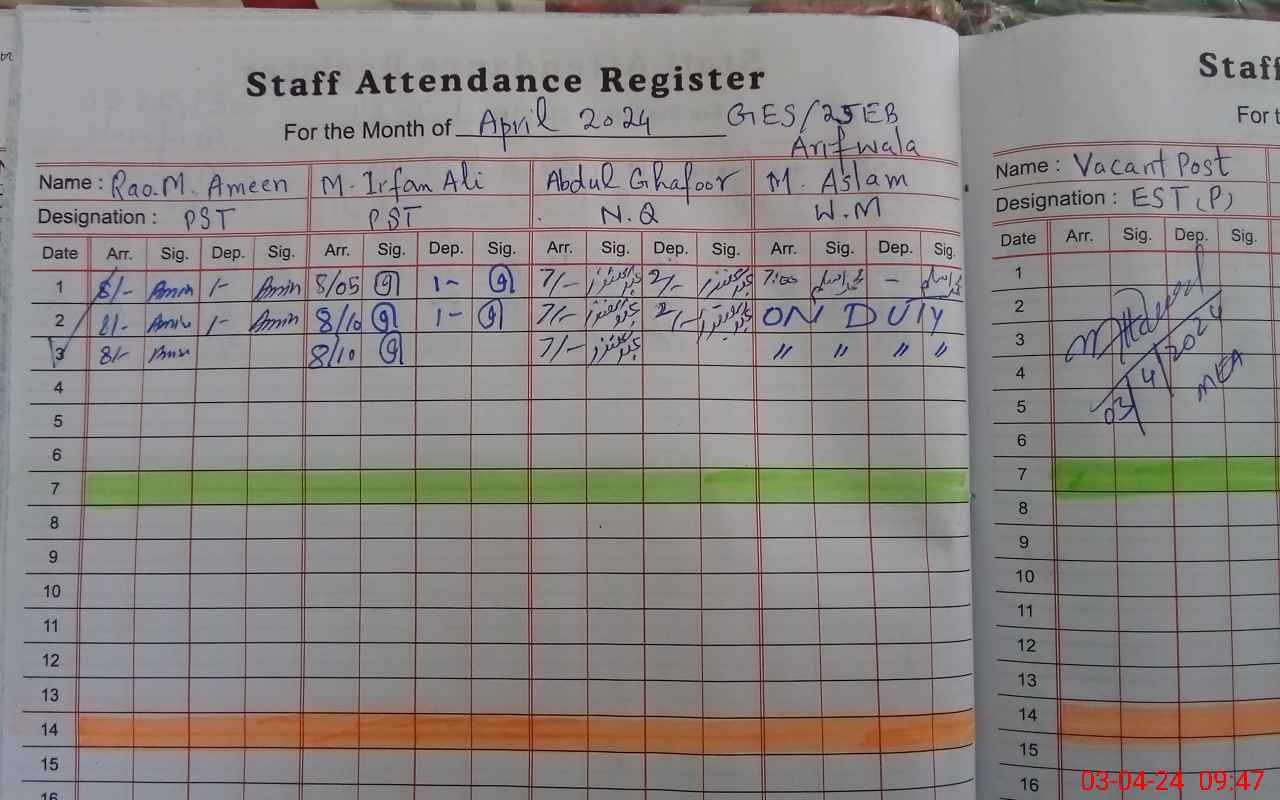 Staff Attendance Register
For the Month of April 2024 GES/25EB
Arifwala
Name : Rao.M. Ameen M. Irfan Ali Abdul Ghafoor M. Aslam
Designation : PST PST N.Q W.M
Date Arr. Sig. Dep. Sig. Arr. Sig. Dep. Sig. Arr. Sig. Dep. Sig. Arr. Sig. Dep. Sig.
1 8/- Amin 1- Amin 8/05 1- 7/- 2/- 7:00 محمد اسلم - محمد اسلم
2 8/- Amin 1- Amin 8/10 1- 7/- 2/- ON DUTY
3 8/- Amin 8/10 7/- " " " "
4
5
6
7
8
9
10
11
12
13
14
15
16
Staff
For t
Name : Vacant Post
Designation : EST (P)
Date Arr. Sig. Dep. Sig.
1
2
3
4
5
6
7
8
9
10
11
12
13
14
15
16
03/4/2024
MEA
03-04-24 09:47